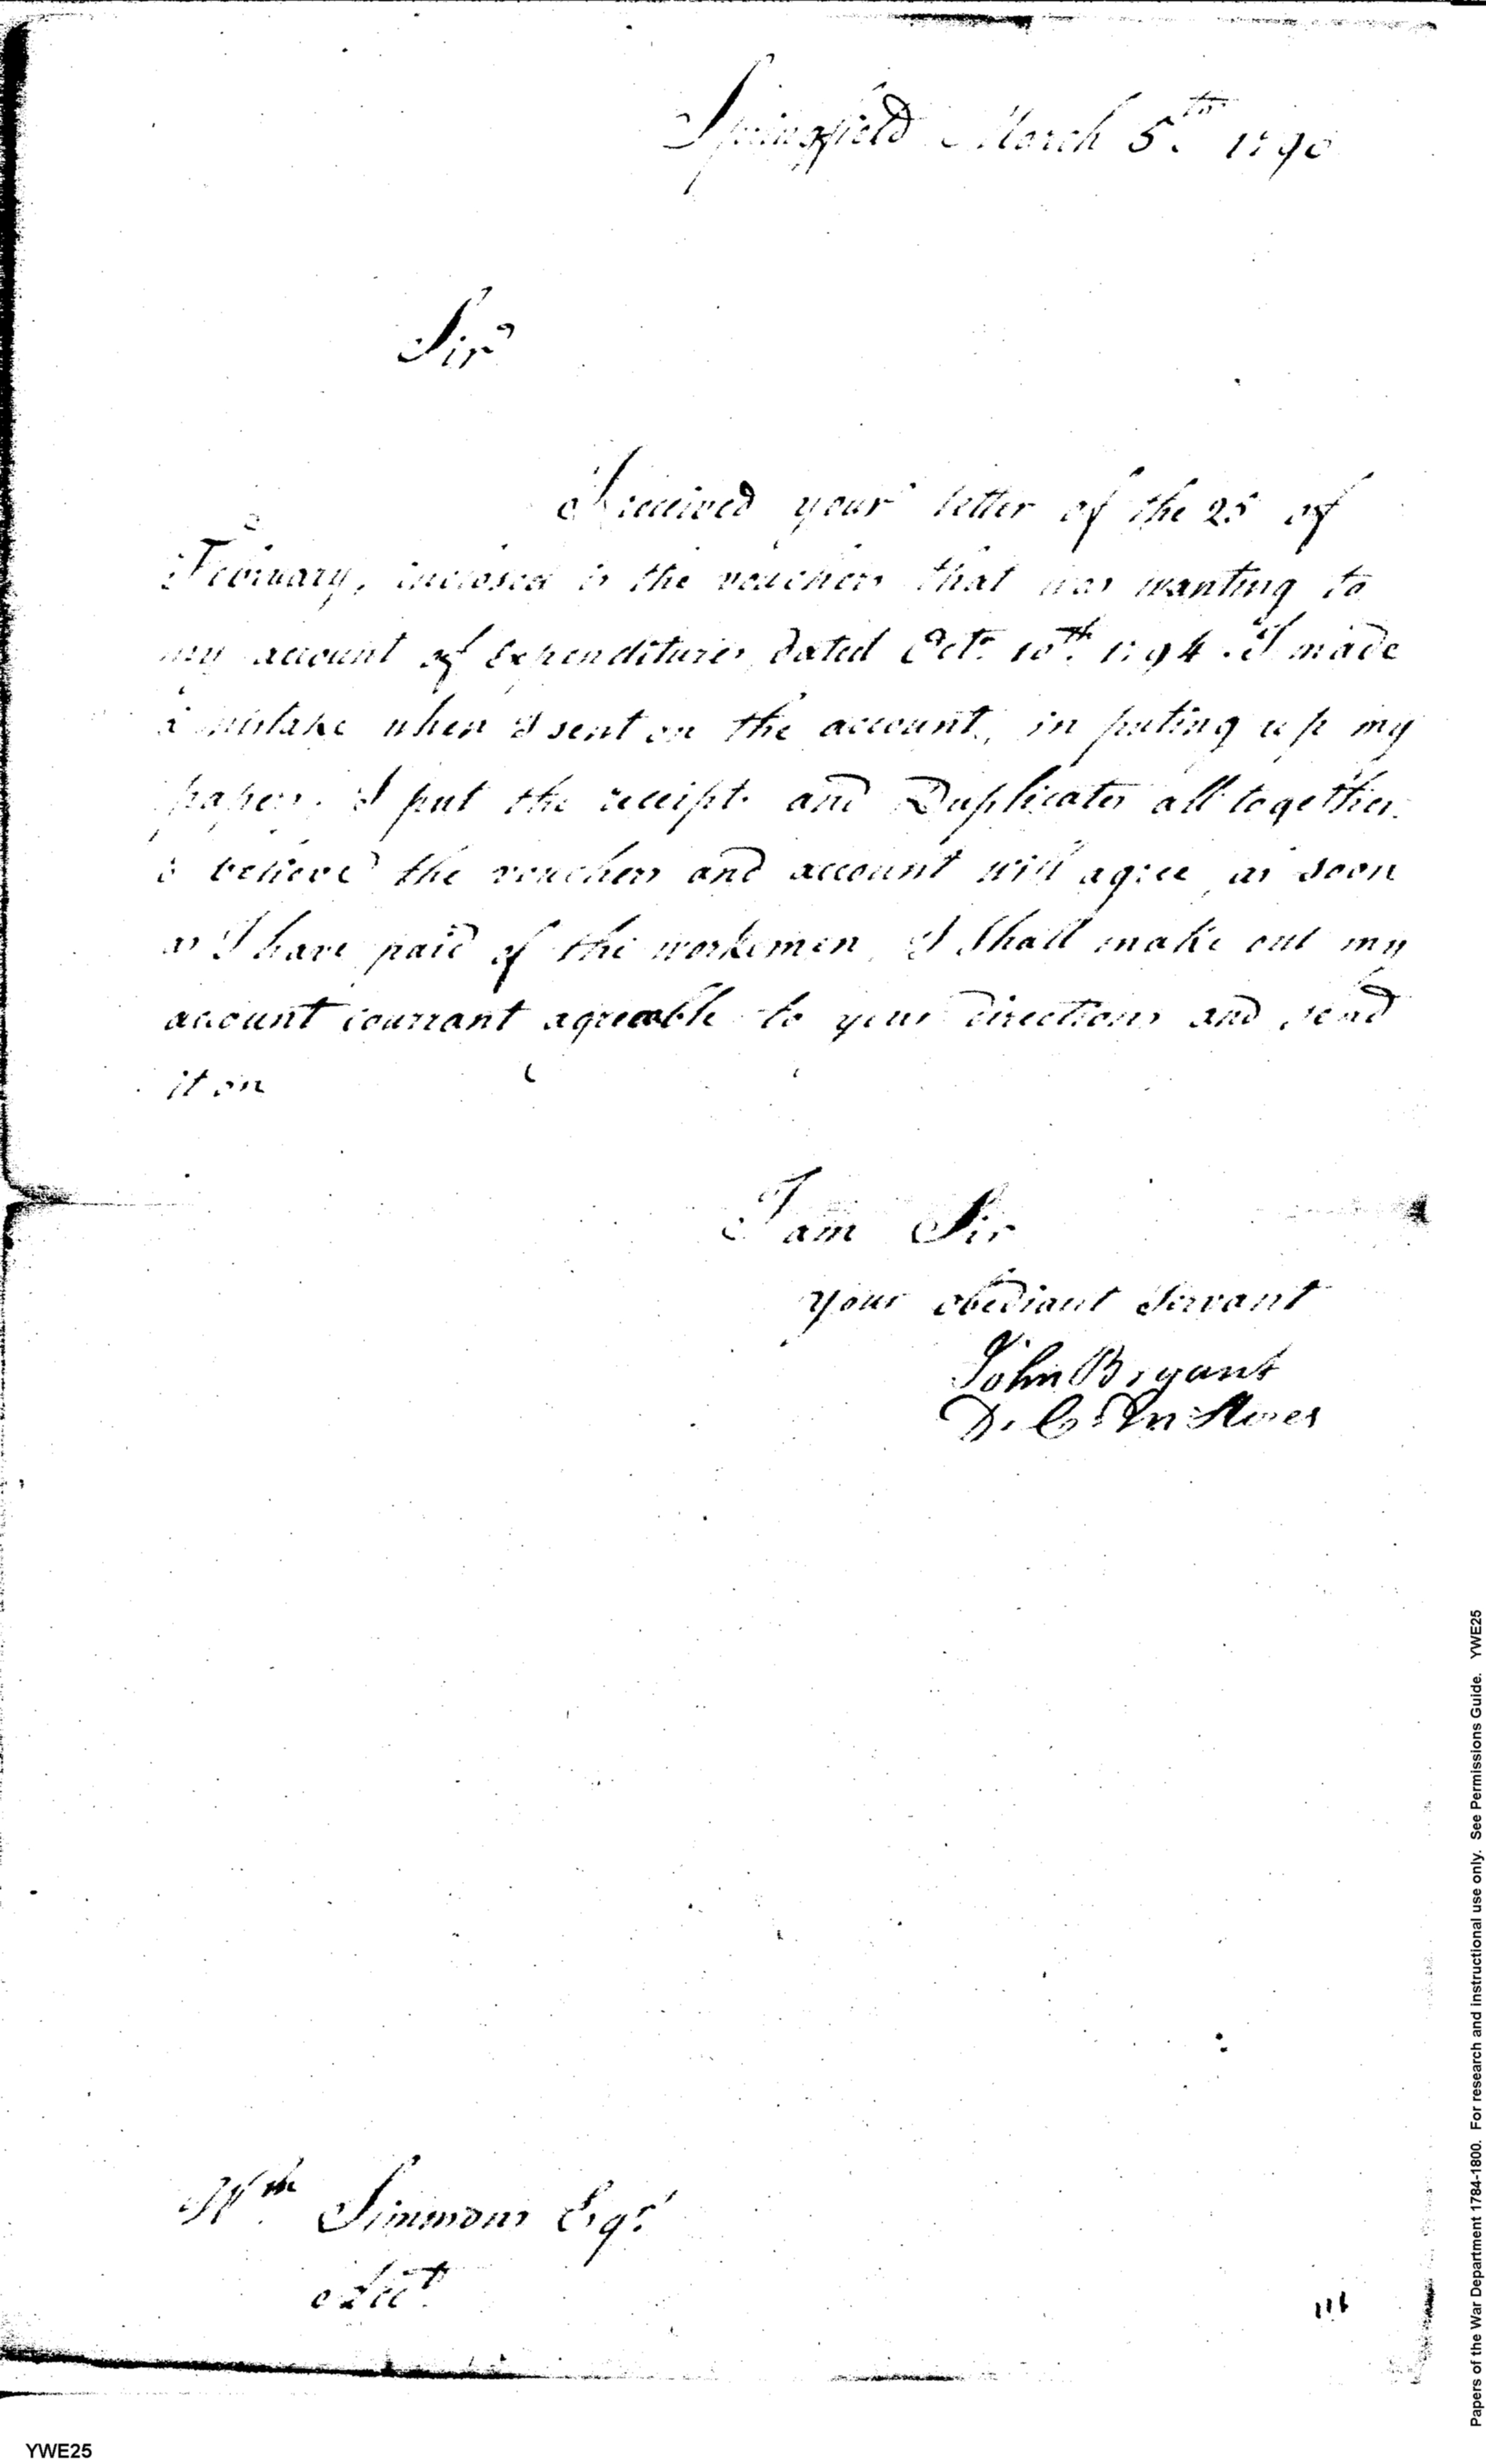 Springfield March 5th 179
Sir
I received your letter of the 25 of
February, inclosed is the vouchers that was wanting to
my account of Expenditures, dated Octr 10th 1794. I made
a mistake when I sent on the account, in puting up my
papers. I put the receipts and Duplicates all together.
I believe the vouchers and account will agree, as soon
as I have paid of the workmen, I Shall make out my
account currant agreeable to your directions and send
it on
I am Sir
your obediant Servant
John Bryant
D. C. M Stores
Wm Simmons Esqr
Acct
116
Papers of the War Department 1784-1800. For research and instructional use only. See Permissions Guide. YWE25
YWE25